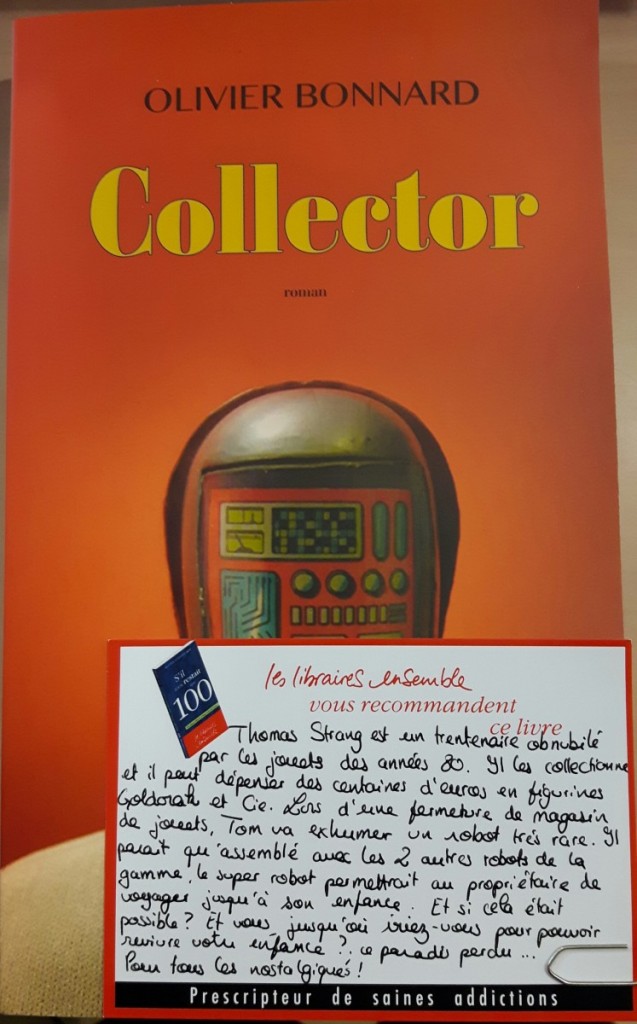 OLIVIER BONNARD
Collector
roman
S'il
restait
100
les libraires ensemble
vous recommandent
ce livre
Thomas Strang est un trentenaire obnubilé
par les jouets des années 80. Il les collectionne
et il peut dépenser des centaines d'euros en figurines
Goldorak et Cie. Lors d'une fermeture de magasin
de jouets, Tom va exhumer un robot très rare. Il
parait qu'assemblé avec les 2 autres robots de la
gamme, le super robot permettrait au propriétaire de
voyager jusqu'à son enfance. Et si cela était
possible ? Et vous, jusqu'où iriez-vous pour pouvoir
revivre votre enfance ?, ce paradis perdu ...
Pour tous les nostalgiques !
Prescripteur de saines addictions